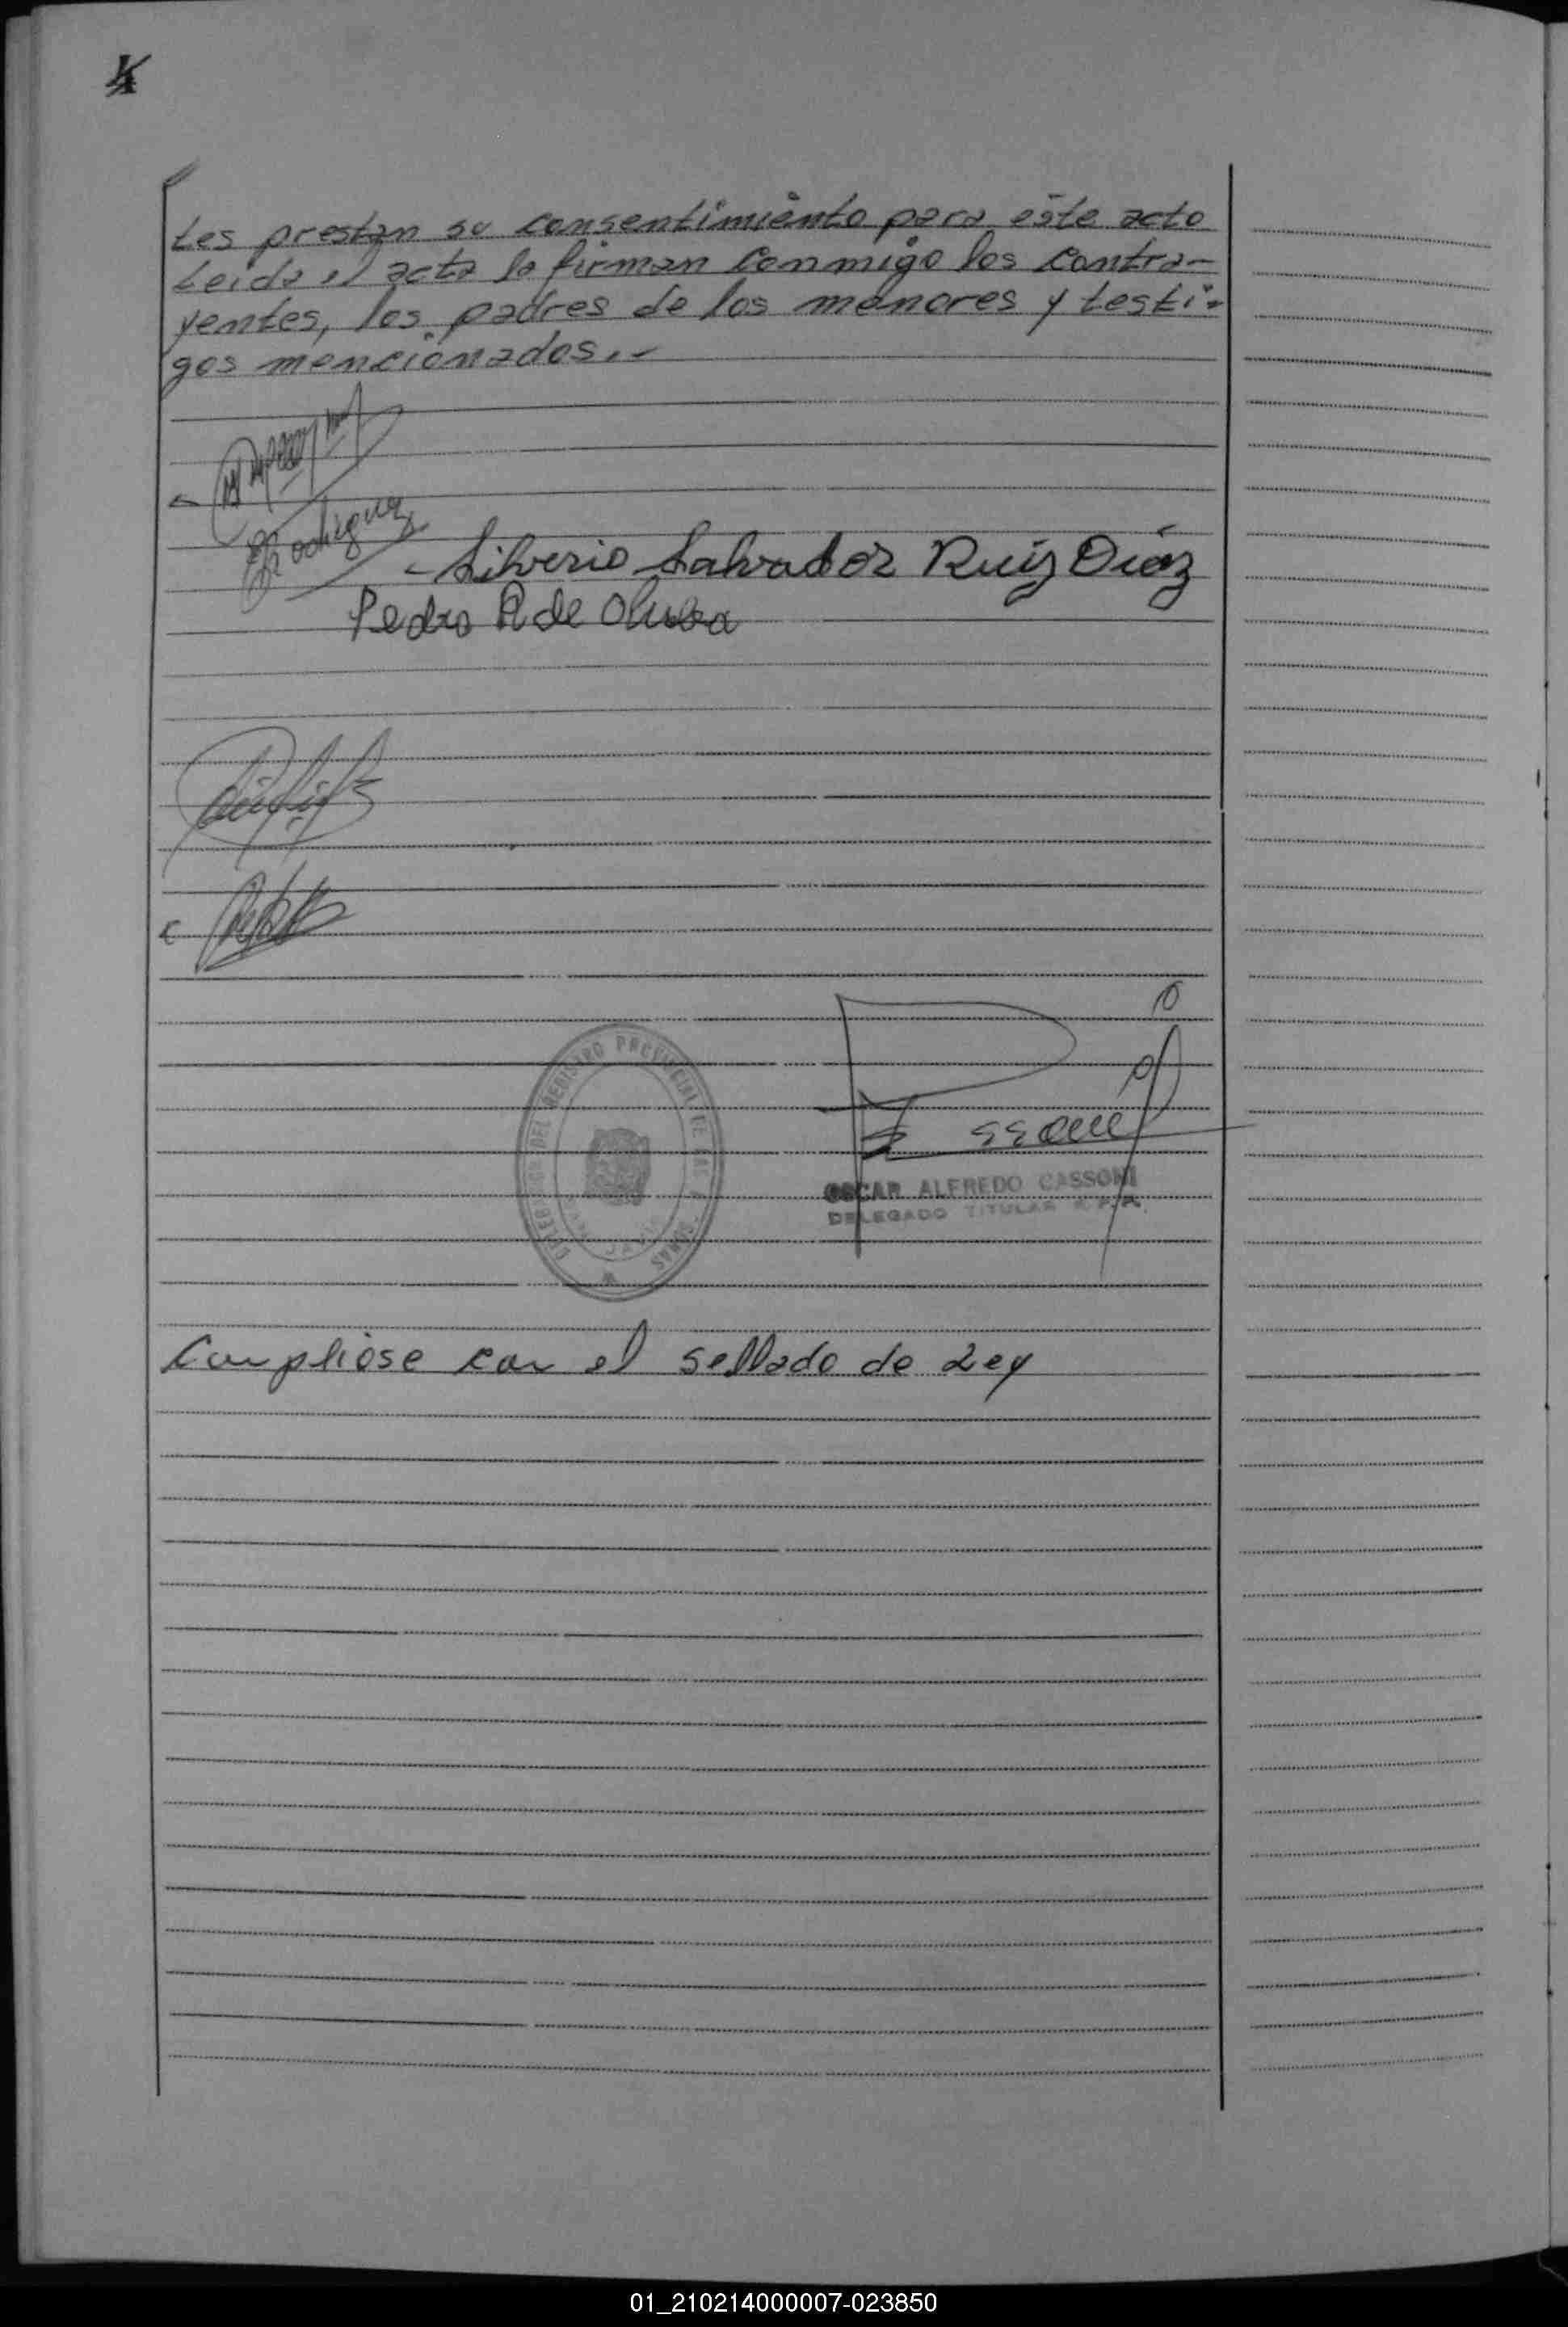 tes prestan su consentimiento para éste acto
Leida el acta la firman conmigo los contra-
yentes, los padres de los menores y testi-
gos mencionados.-
Rodriguez
Silverio Salvador Ruiz Diaz
Pedro A de Oliveira
DEL REGISTRO PROVINCIAL DE LAS PERSONAS
OSCAR ALFREDO CASSONI
DELEGADO TITULAR R.P.P.
Cumpliose con el sellado de Ley
01_210214000007-023850